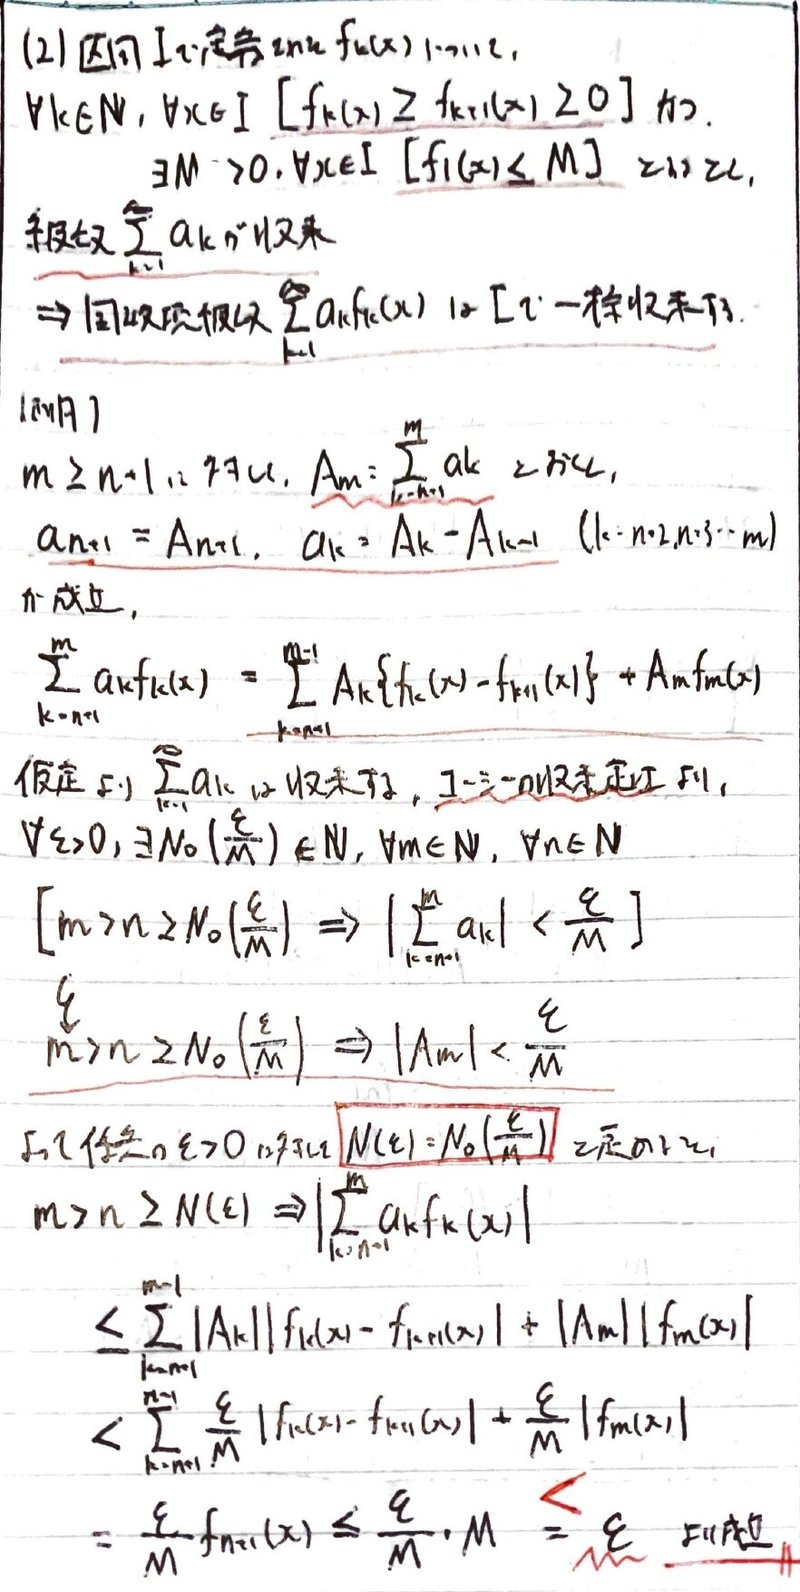 (2) 区間 I で定義された fk(x) について,
∀k∈ℕ, ∀x∈I [fk(x) ≥ fk+1(x) ≥ 0] かつ.
∃M >0, ∀x∈I [f1(x) ≤ M] とするとし,
級数 ∞Σk=1 ak が収束
⇒ 関数項級数 ∞Σk=1 akfk(x) は I で一様収束する.
証明)
m ≥ n+1 に対し, Am = mΣk=n+1 ak とおくと,
an+1 = An+1, ak = Ak - Ak-1 (k=n+2,n+3…m)
が成立,
mΣk=n+1 akfk(x) = m-1Σk=n+1 Ak{fk(x)-fk+1(x)} + Amfm(x)
仮定より ∞Σk=1 ak は収束する, コーシーの収束定理より,
∀ε>0, ∃N0(ε/M) ∈ ℕ, ∀m∈ℕ, ∀n∈ℕ
[m>n≥N0(ε/M) ⇒ |mΣk=n+1 ak| < ε/M]
m>n≥N0(ε/M) ⇒ |Am| < ε/M
よって任意のε>0に対して N(ε)=N0(ε/M) と定めると,
m>n ≥ N(ε) ⇒ |mΣk=n+1 akfk(x)|
≤ m-1Σk=n+1 |Ak||fk(x)-fk+1(x)| + |Am||fm(x)|
< n-1Σk=n+1 ε/M |fk(x)-fk+1(x)| + ε/M |fm(x)|
<
= ε/M fn+1(x) ≤ ε/M・M = ε より成立